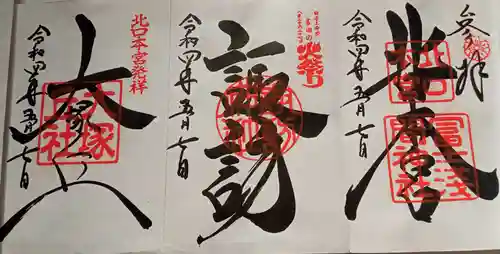 参拝
北口本宮
冨士浅間神社
令和四年五月七日
吉田の
火祭り
諏訪
令和四年五月七日
北口本宮発祥
大塚丘
大塚
丘社
令和四年五月七日